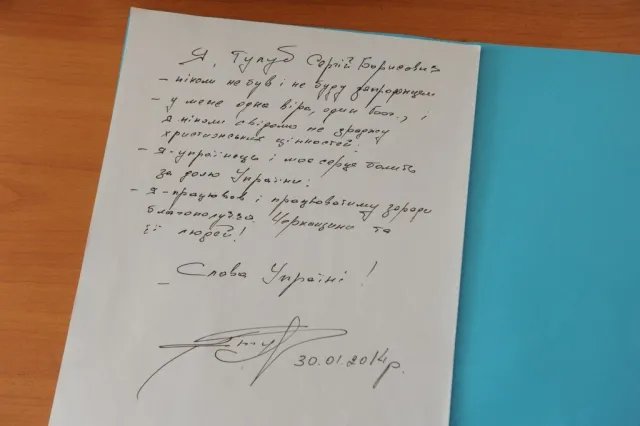 Я, Тулуб Сергій Борисович
– ніколи не був і не буду запроданцем
– у мене одна віра, один бог, і
я ніколи свідомо не зраджу
християнських цінностей.
– Я – українець і моє серце болить
за долю України.
– Я – працював і працюватиму заради
благополуччя Черкащини та
її людей!
– Слава Україні!
30.01.2014 р.